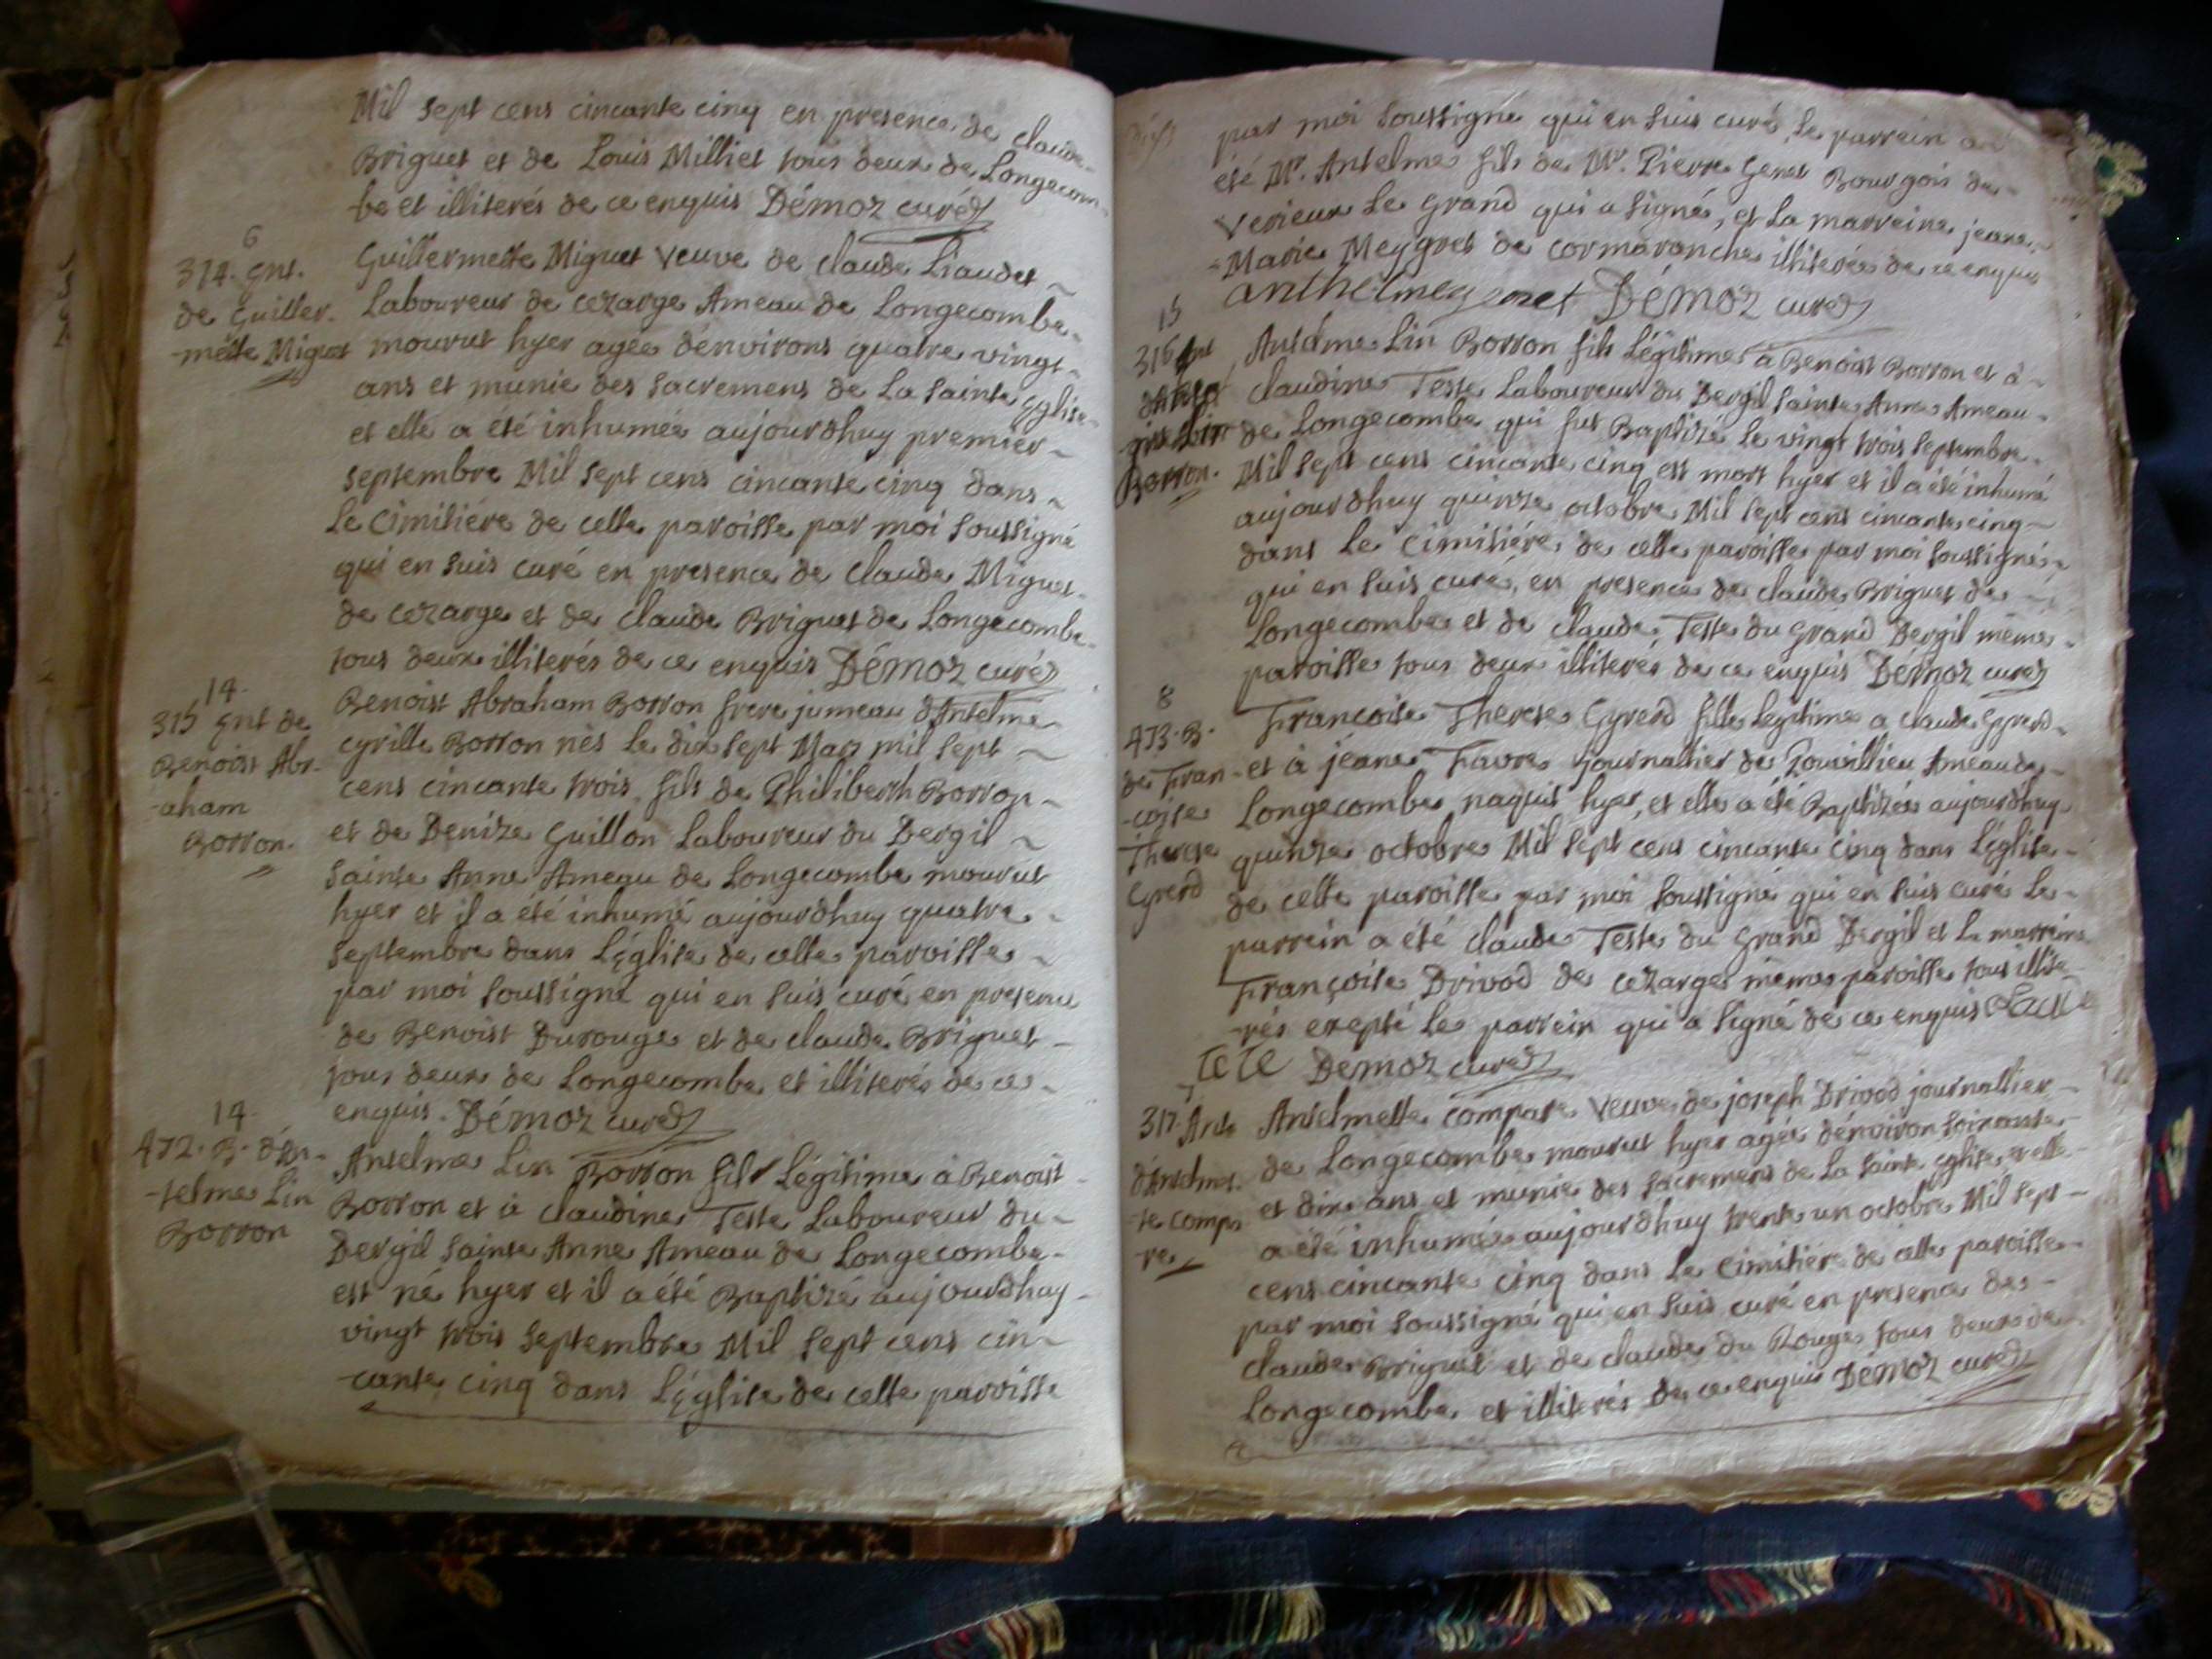 Mil sept cens cincante cinq en presence de claude
Briguet et de Louis Milliet tous deux de Longecom-
be et illiterés de ce enquis Démoz curé
6
314. Ent.
de Guiller-
-mette Miguet
Guillermette Miguet veuve de claude Liaudet
Laboureur de cezarge Ameau de Longecombe
mourut hyer agée dénvirons quatre vingt
ans et munie des sacremens de La sainte Eglise
et elle a été inhumée aujourdhuy premier
septembre Mil sept cens cincante cinq dans
Le cimitiére de cette paroisse par moi soussigné
qui en suis curé en presence de claude Miguet
de cezarge et de claude Briguet de Longecombe
tous deux illiterés de ce enquis Démoz curé
14.
315 Ent de
Benoist Abr-
-aham
Borron.
Benoist Abraham Borron frere jumeau d'Antelme
cyrille Borron nés Le dix sept Mars mil sept
cens cincante trois, fils de Philiberth Borron
et de Denize Guillon Laboureur du Bergil
sainte Anne Ameau de Longecombe mourut
hyer et il a été inhumé aujourdhuy quatre
septembre dans L'église de cette paroisse
par moi soussigné qui en suis curé en presence
de Benoist Durouge et de claude Briguet
tous deux de Longecombe et illiterés de ce
enquis. Démoz curé
14
472. B. d'An-
-telme Lin
Borron
Antelme Lin Borron fils Légitime à Benoist
Borron et à claudine Teste Laboureur du
Bergil sainte Anne Ameau de Longecombe
est né hyer et il a été Baptizé aujourdhuy
vingt trois septembre Mil sept cens cin-
-cante cinq dans L'église de cette paroisse
par moi soussigné qui en suis curé, Le parrein a
été Mr. Antelme fils de Mr. Pierre Genet Bourgois de
Verieux Le grand qui a signé, et La marreine jeane
Marie Meygret de cormaranche illiterée de ce enquis
anthelme genet Démoz curé
15
316 Ent
Borron.
Antelme Lin Borron fils Légitime à Benoist Borron et à
claudine Teste Laboureur du Bergil sainte Anne Ameau
de Longecombe qui fut Baptizé Le vingt trois septembre
Mil sept cens cincante cinq est mort hyer et il a été inhumé
aujourdhuy quinze octobre Mil sept cens cincante cinq
dans Le cimitiére de cette paroisse par moi soussigné
qui en suis curé, en presence de claude Briguet de
Longecombe et de claude Teste du Grand Bergil même
paroisse tous deux illiterés de ce enquis Démoz curé
8
473. B.
de Fran-
-coise
Therese
Gyrerd
Francoise Therese Gyrerd fille Legitime a claude Gyrerd
et à jeane Favre journallier de Pouvillieu Ameau de
Longecombe naquit hyer, et elle a été Baptizée aujourdhuy
quinze octobre Mil sept cens cincante cinq dans L'église
de cette paroisse par moi soussigné qui en suis curé Le
parrein a été claude Teste du Grand Bergil et La marreine
Françoise Drivod de cezarge même paroisse tous illite
-rés exepté Le parrein qui a signé de ce enquis claude
TeTe Démoz curé
7
317. Ant.
d'Antelmet-
-te compa
-re
Antelmette compare veuve de joseph Drivod journallier
de Longecombe mourut hyer agée dénviron soixante
et dix ans et munie des sacremens de La sainte église, et elle
a été inhumée aujourdhuy trente un octobre Mil sept
cens cincante cinq dans Le cimitiére de cette paroisse
par moi soussigné qui en suis curé en presence de
claude Briguet et de claude du Rouge tous deux de
Longecombe et illiterés de ce enquis Démoz curé